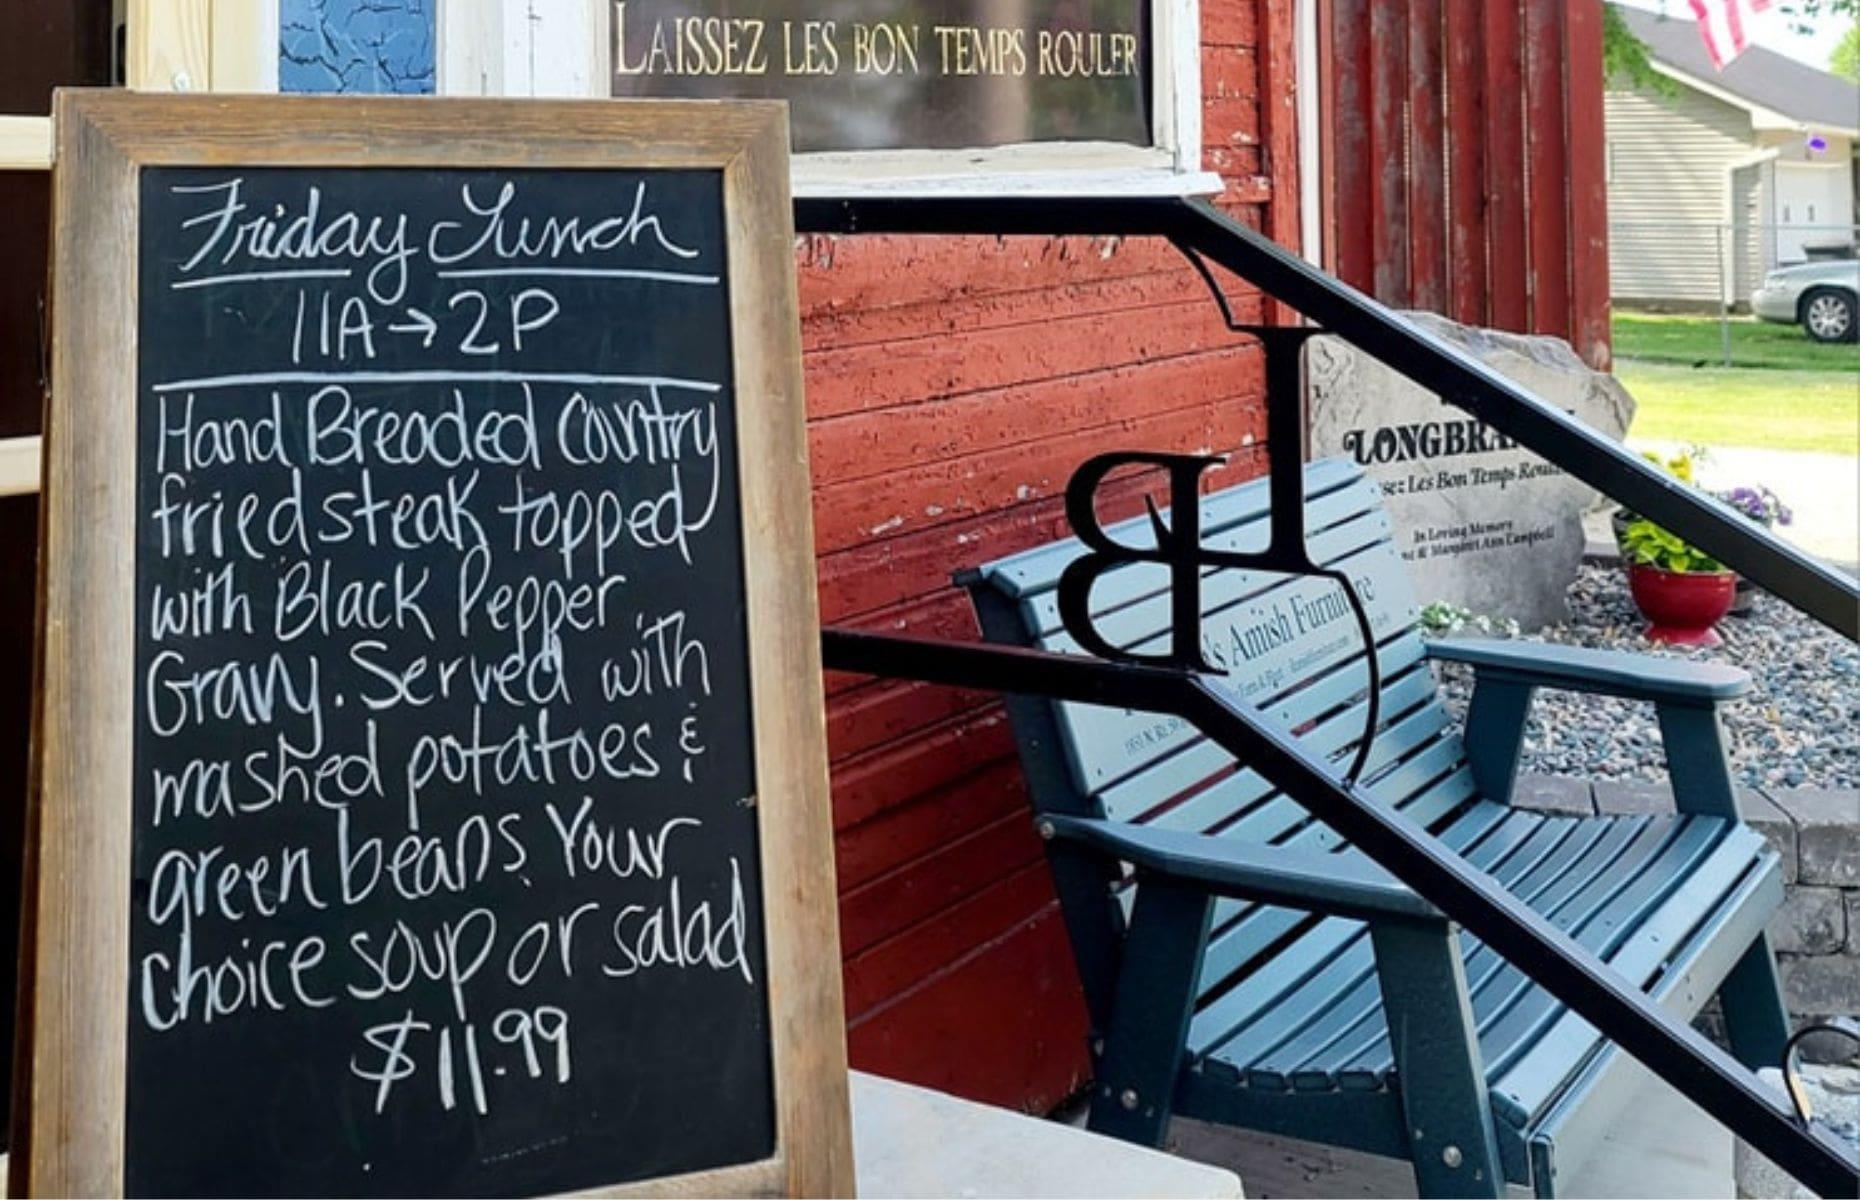 LAISSEZ LES BON TEMPS ROULER
Friday Lunch
11A → 2P
Hand Breaded Country
fried steak topped
with Black Pepper
Gravy. Served with
mashed potatoes &
green beans. Your
choice soup or salad
$11.99
LONGBRA
Les Bon Temps
In Loving Memory
& Margaret Ann Campbell
Amish Furniture